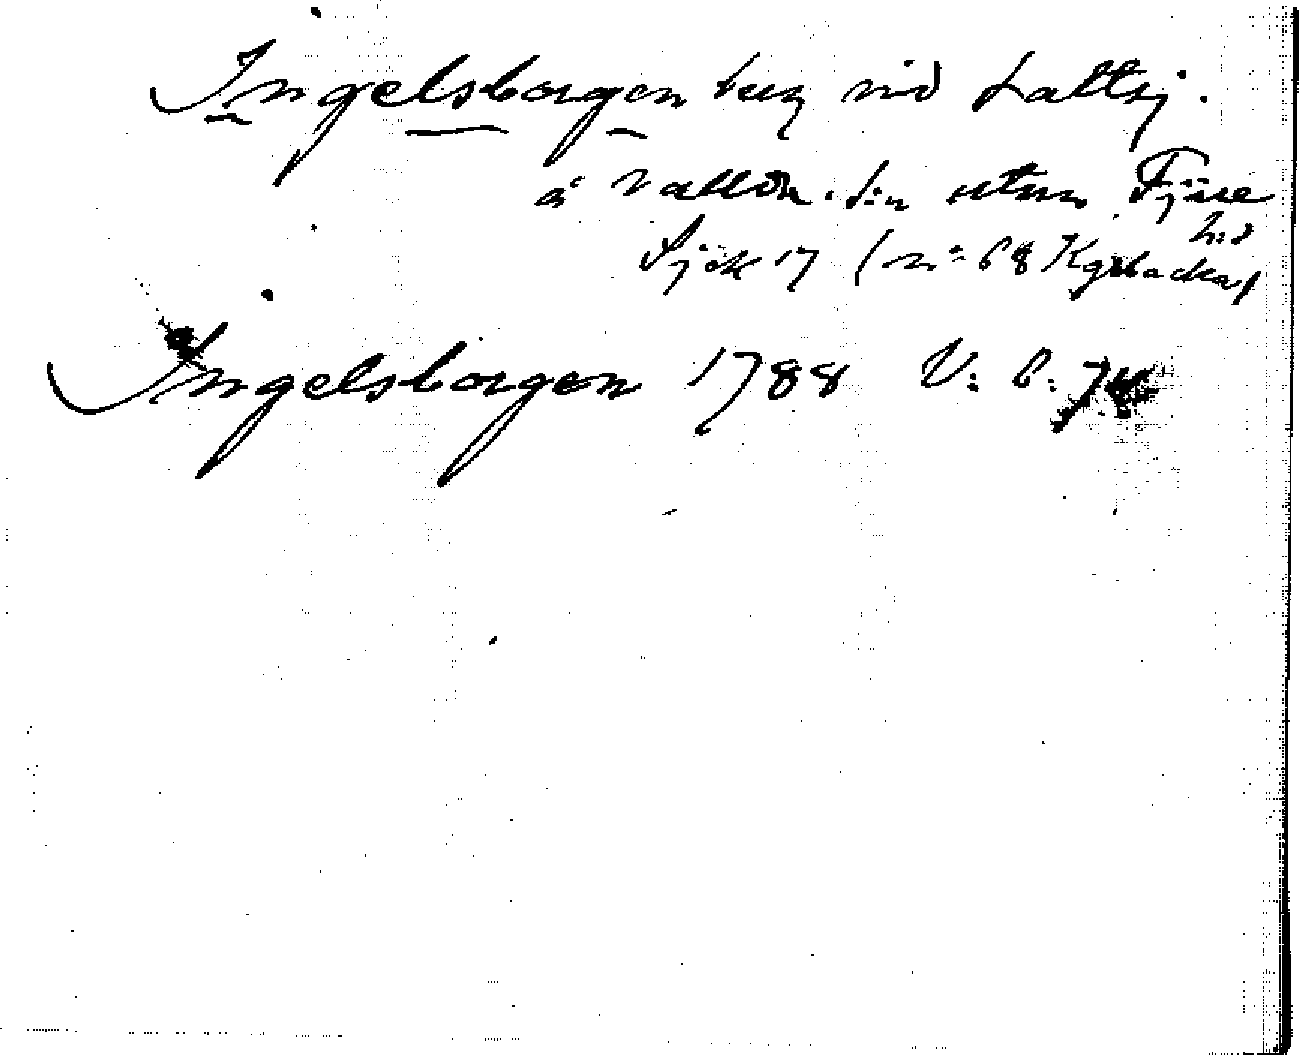 Ingelsborgen berg vid Lallsj.
å Vallda. sin utom Fjäre
hd
Sjök 17 (n:o 68 Kgsbacka)
Ingelsborgen 1788 V: 6: